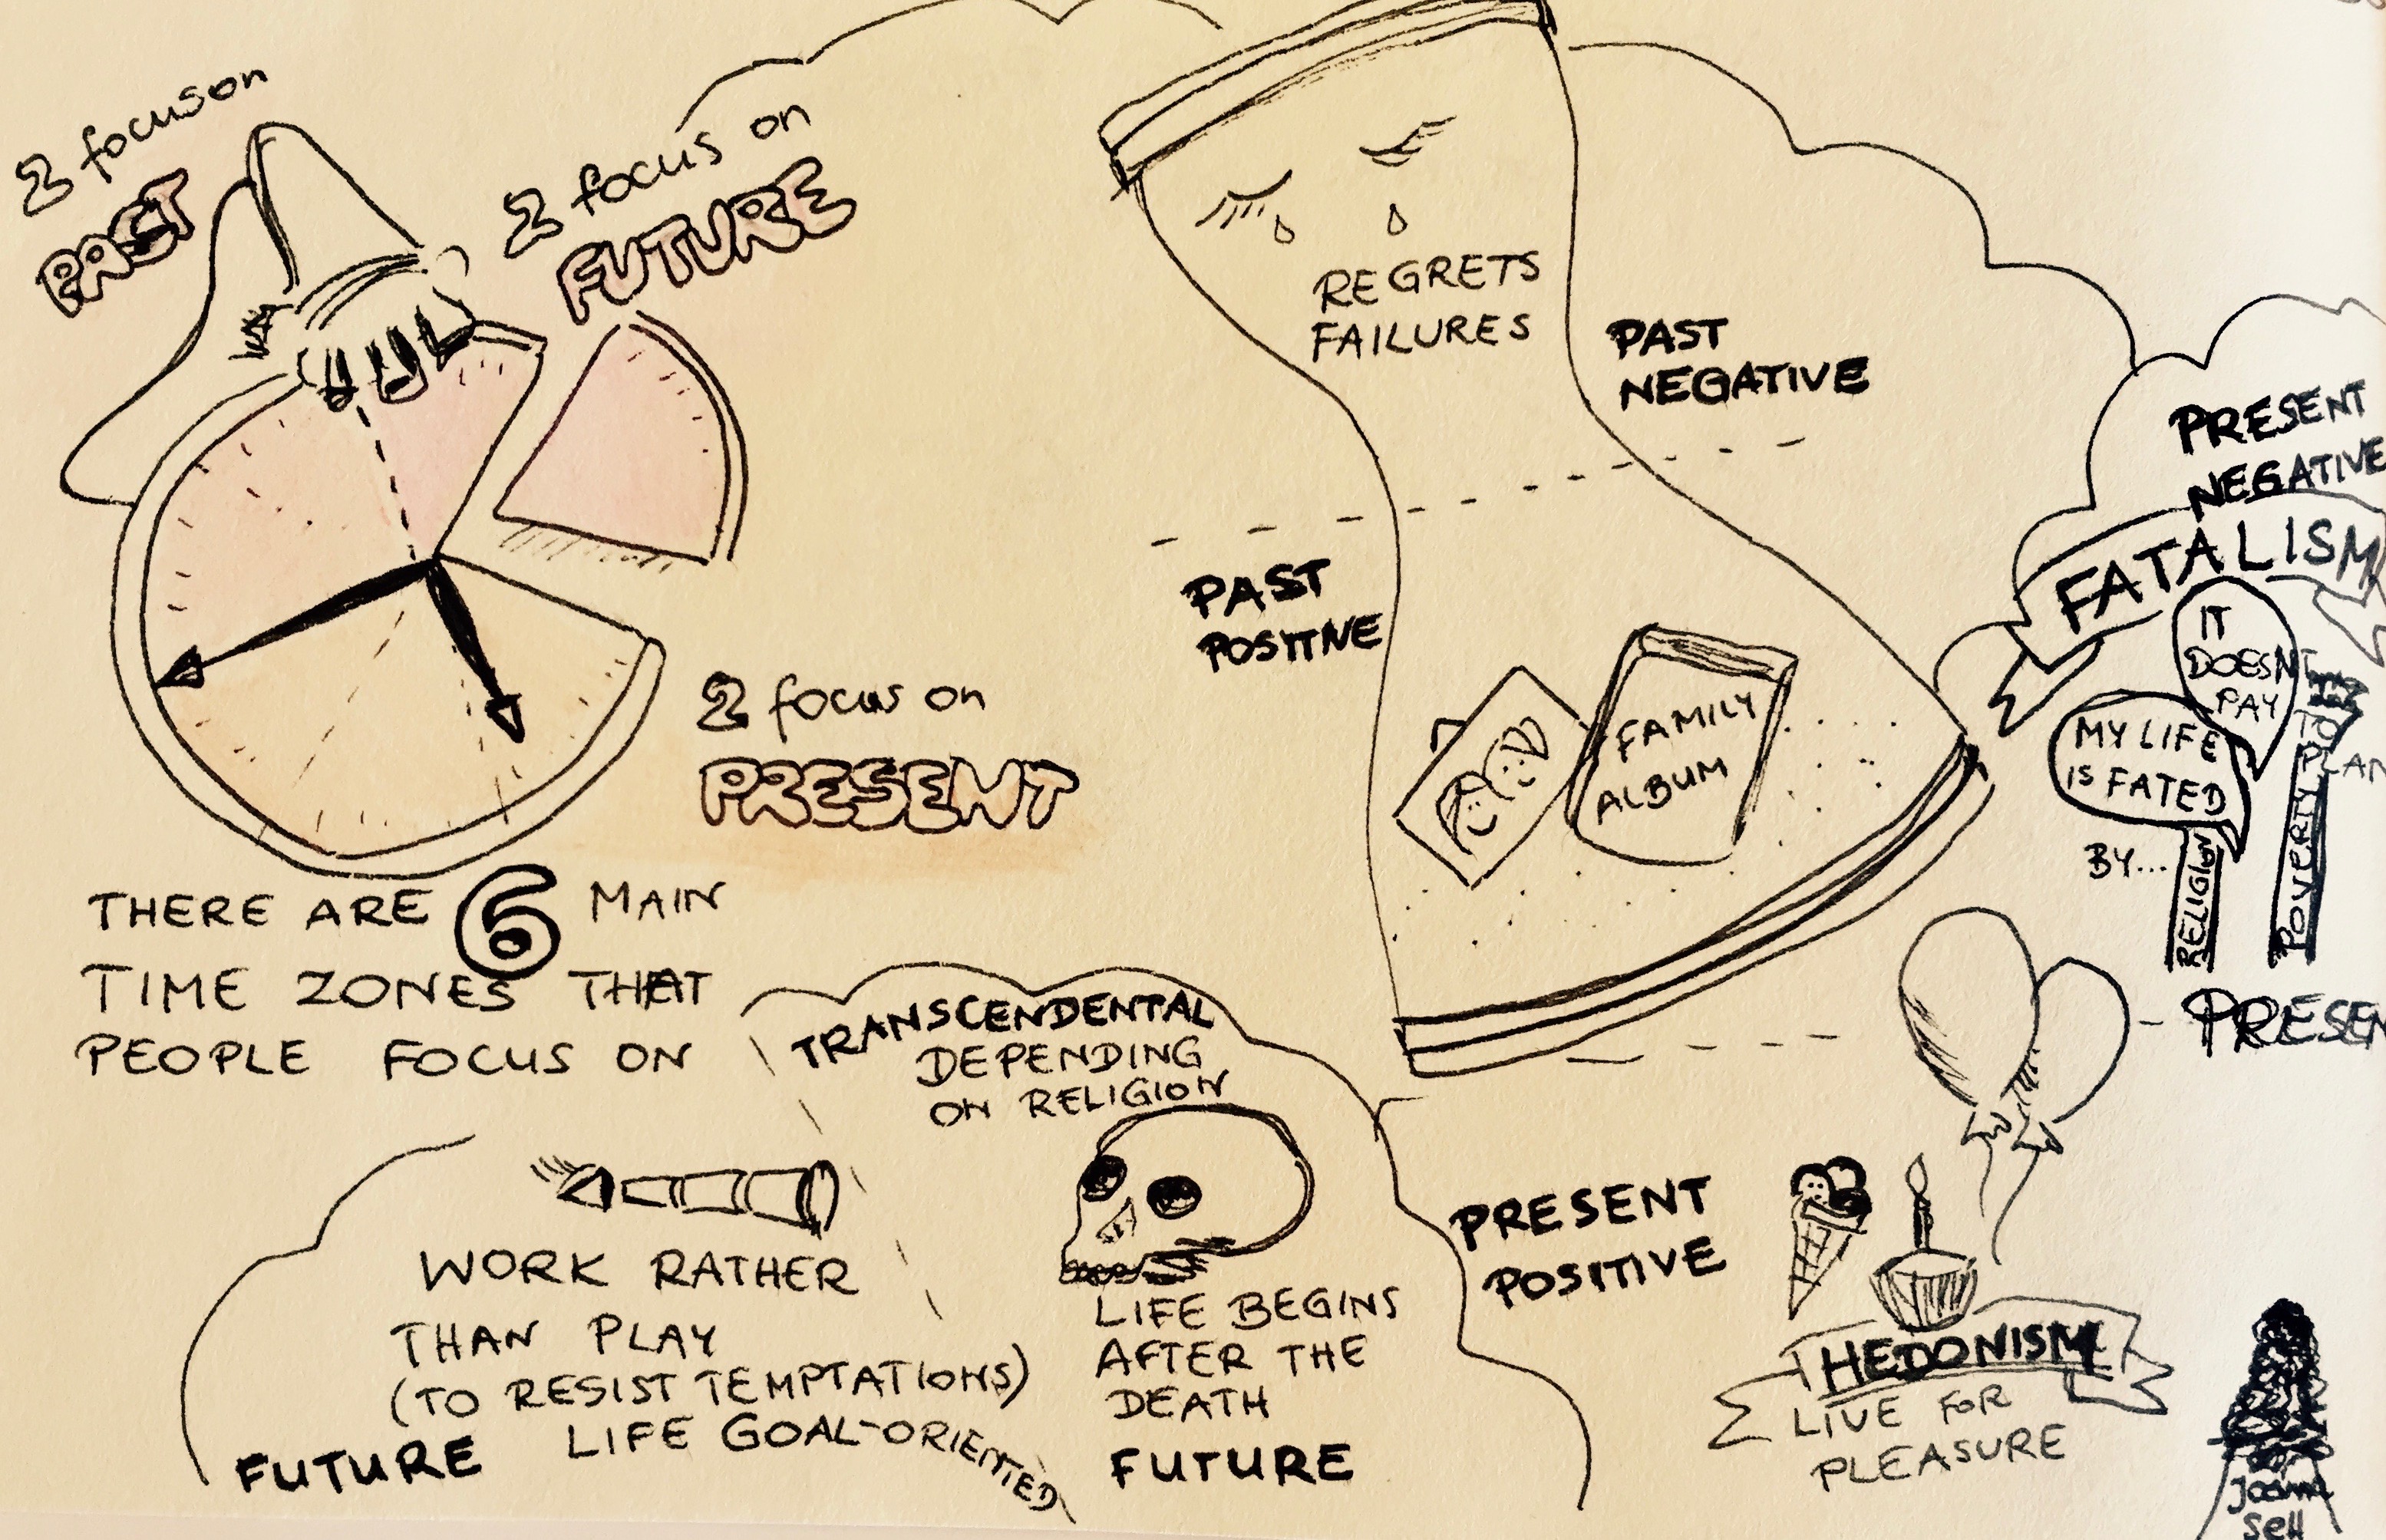 2 focus on
PAST
2 focus on
FUTURE
2 focus on
PRESENT
THERE ARE 6 MAIN
TIME ZONES THAT
PEOPLE FOCUS ON
REGRETS
FAILURES
PAST
NEGATIVE
PAST
POSITIVE
FAMILY
ALBUM
PRESENT
NEGATIVE
FATALISM
IT
DOESN'T
PAY
TO
PLAN
MY LIFE
IS FATED
BY...
RELIGION
POVERTY
PRESEN
PRESENT
POSITIVE
HEDONISM
LIVE FOR
PLEASURE
TRANSCENDENTAL
DEPENDING
ON RELIGION
LIFE BEGINS
AFTER THE
DEATH
FUTURE
WORK RATHER
THAN PLAY
(TO RESIST TEMPTATIONS)
LIFE GOAL-ORIENTED
FUTURE
Sell